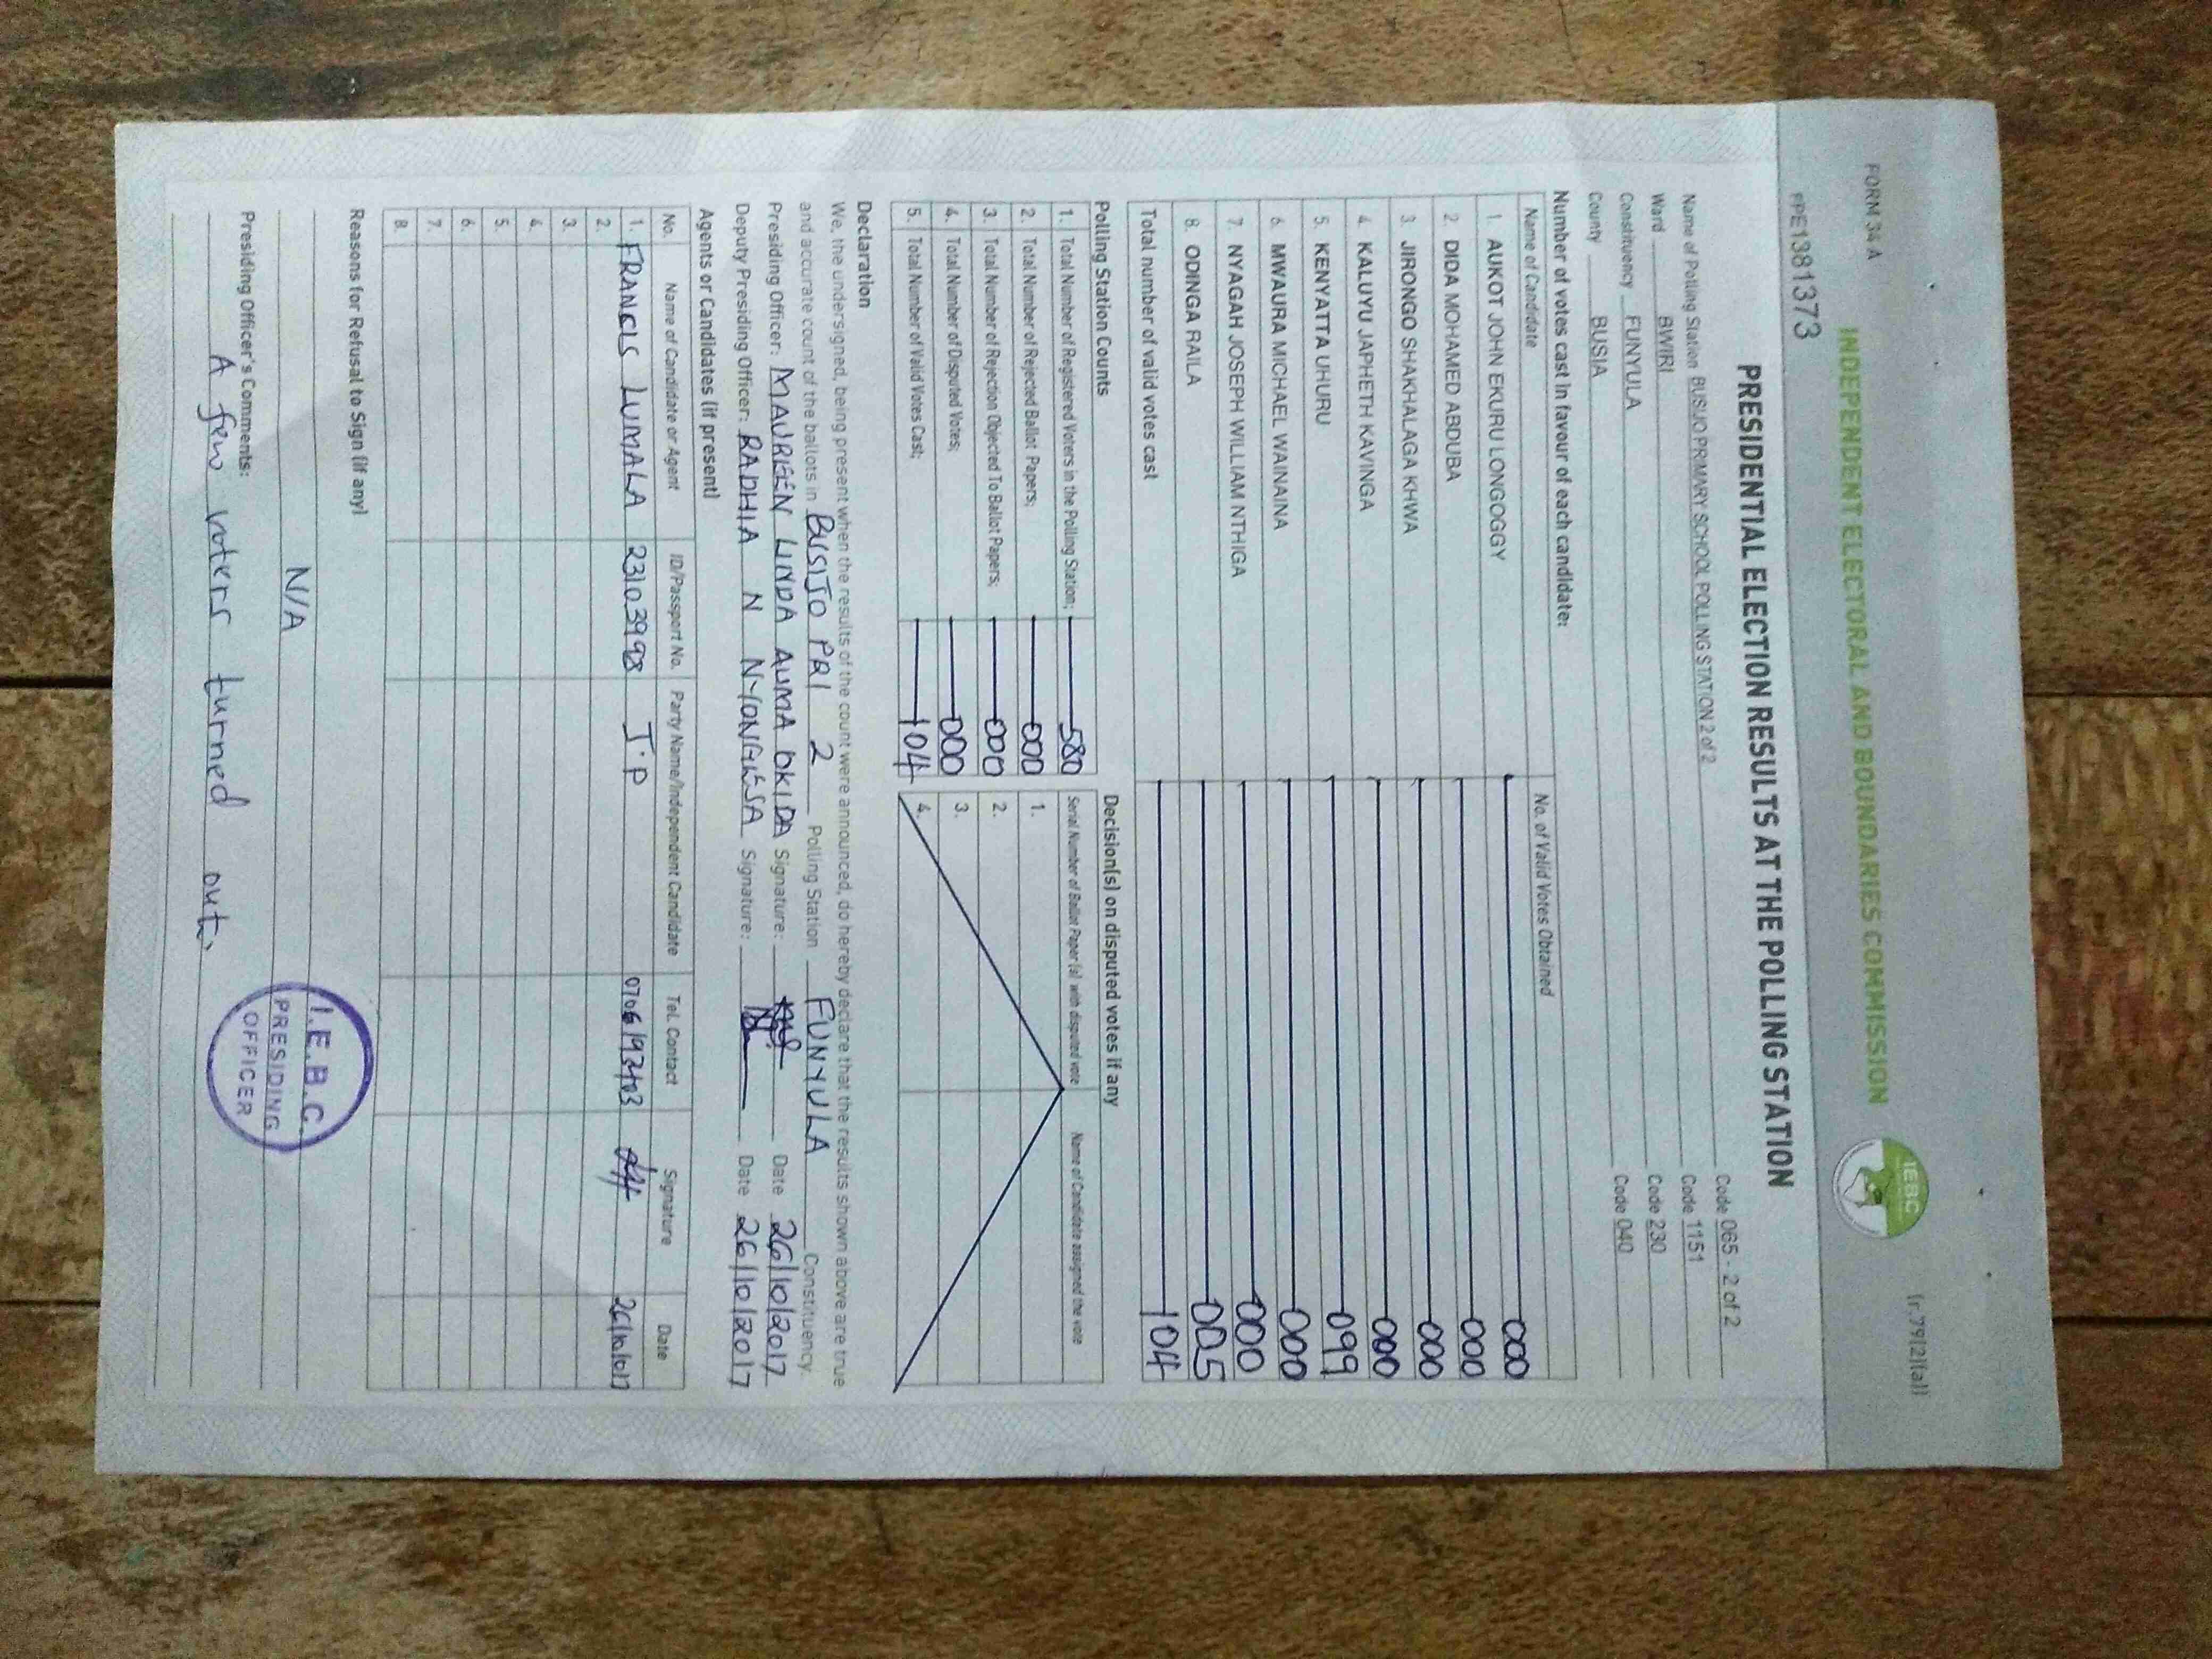 FORM 34 A
(r.79(2)(a))
INDEPENDENT ELECTORAL AND BOUNDARIES COMMISSION
IEBC
PPE1381373
PRESIDENTIAL ELECTION RESULTS AT THE POLLING STATION
Name of Polling Station BUSIJO PRIMARY SCHOOL POLLING STATION 2 of 2 Code 065 - 2 of 2
Ward BWIRI Code 1151
Constituency FUNYULA Code 230
County BUSIA Code 040
Number of votes cast in favour of each candidate:
Name of Candidate No. of Valid Votes Obtained
1. AUKOT JOHN EKURU LONGOGGY 000
2. DIDA MOHAMED ABDUBA 000
3. JIRONGO SHAKHALAGA KHWA 000
4. KALUYU JAPHETH KAVINGA 000
5. KENYATTA UHURU 099
6. MWAURA MICHAEL WAINAINA 000
7. NYAGAH JOSEPH WILLIAM NTHIGA 000
8. ODINGA RAILA 005
Total number of valid votes cast 104
Polling Station Counts
1. Total Number of Registered Voters in the Polling Station; 580
2. Total Number of Rejected Ballot Papers; 000
3. Total Number of Rejection Objected To Ballot Papers; 000
4. Total Number of Disputed Votes; 000
5. Total Number of Valid Votes Cast; 104
Decision(s) on disputed votes if any
Serial Number of Ballot Paper (s) with disputed vote Name of Candidate assigned the vote
1.
2.
3.
4.
Declaration
We, the undersigned, being present when the results of the count were announced, do hereby declare that the results shown above are true
and accurate count of the ballots in BUSIJO PRI 2 Polling Station FUNYULA Constituency.
Presiding Officer: MAUREEN LINDA AUMA OKIDA Signature: Date 26/10/2017
Deputy Presiding Officer: RADHIA N NYONGESA Signature: Date 26/10/2017
Agents or Candidates (if present)
No. Name of Candidate or Agent ID/Passport No. Party Name/Independent Candidate Tel. Contact Signature Date
1. FRANCIS LUMALA 23103998 J.P 26/10/017
2.
3.
4.
5.
6.
7.
8.
Reasons for Refusal to Sign (if any)
N/A
Presiding Officer's Comments:
A few voters turned out.
I.E.B.C.
PRESIDING
OFFICER